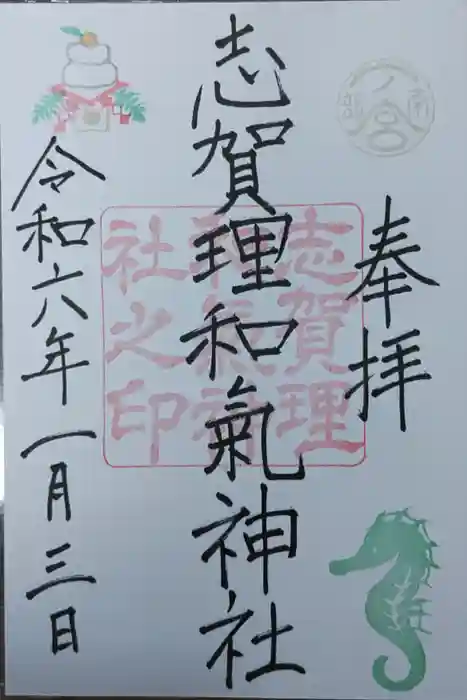 奉拝
志賀理和氣神社
令和六年一月三日
志賀理
和氣神
社之印
一ノ宮
南部